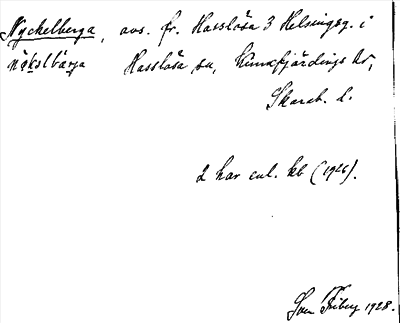 Nyckelberga, avs. fr. Hasslösa 3 Helsingsg. i
nøkəlbærja Hasslösa sn, Kinnefjärdings hd,
Skarab. l.
2 har enl. kb (1926).
Sven Friberg 1928.